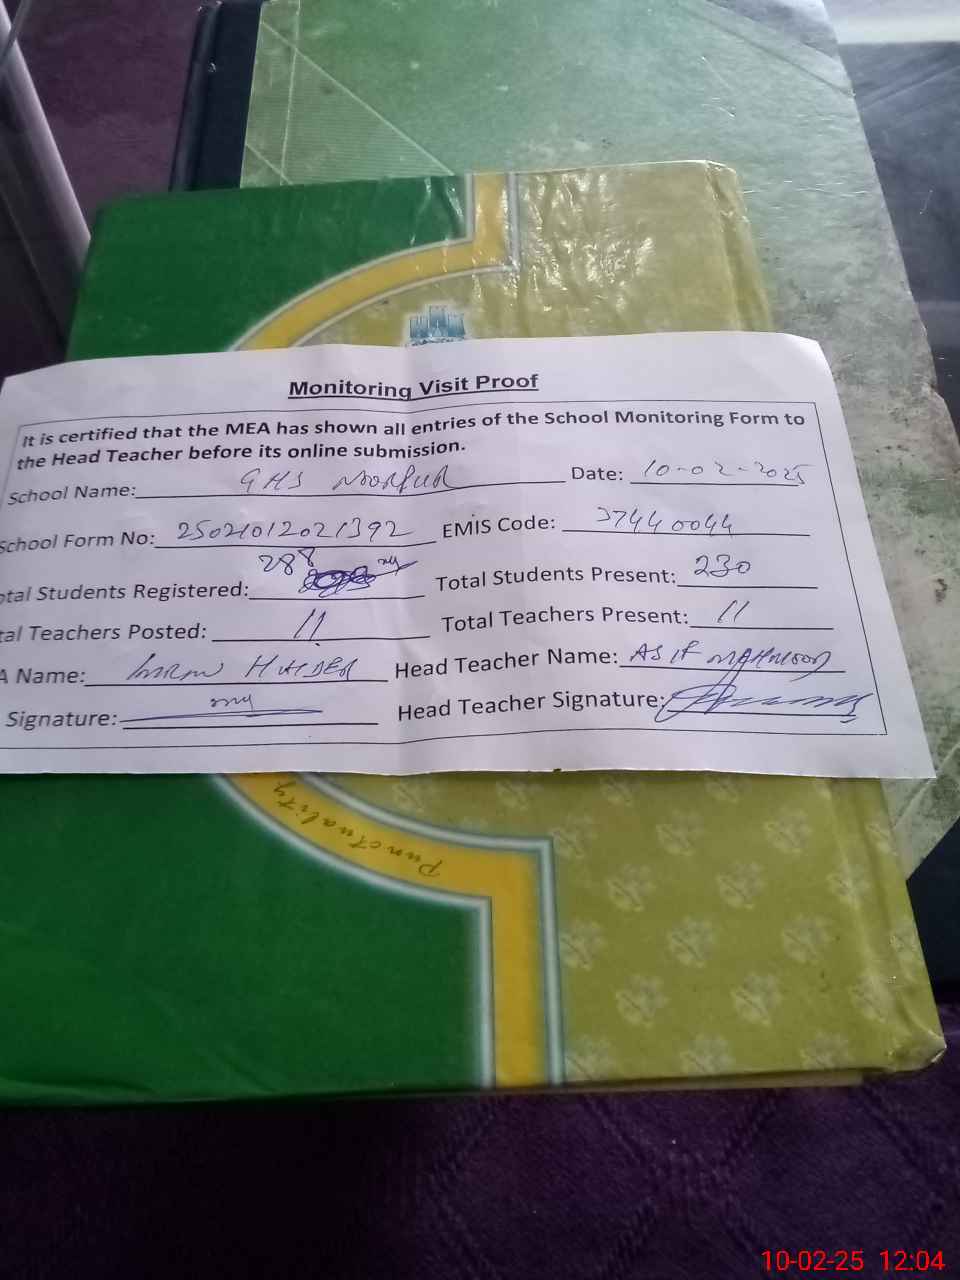 Monitoring Visit Proof
It is certified that the MEA has shown all entries of the School Monitoring Form to
the Head Teacher before its online submission.
School Name: GHS Date: 10-02-2025
School Form No: EMIS Code: 37440044
otal Students Registered: 288 Total Students Present: 230
tal Teachers Posted: 11 Total Teachers Present: 11
A Name: HAIDER Head Teacher Name: ASIF MAHMOOD
Signature: Head Teacher Signature:
Punctuality
10-02-25 12:04